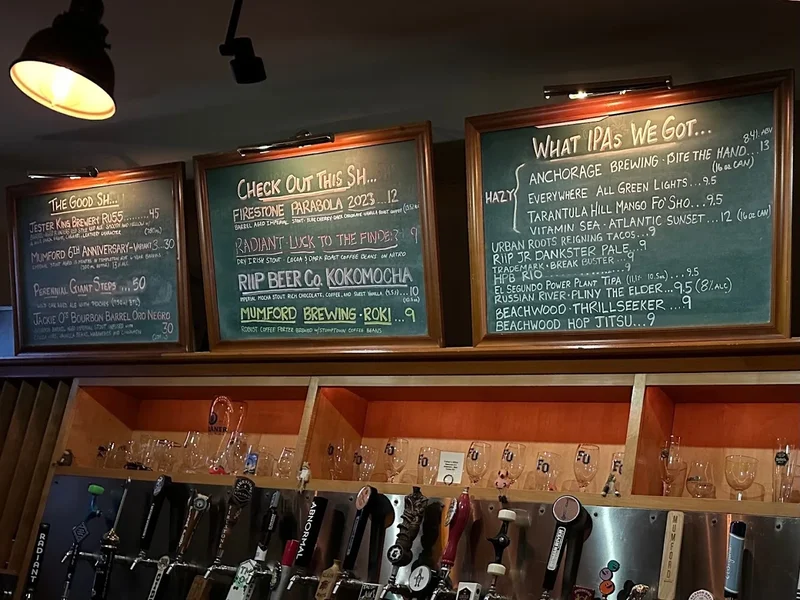 THE GOOD SH...
JESTER KING BREWERY RU55.......45
MUMFORD 6TH ANNIVERSARY-VARIANT 3...30
PERENNIAL GIANT STEPS ... 50
JACKIE O'S BOURBON BARREL ORO NEGRO
30
CHECK OUT THIS SH...
FIRESTONE PARABOLA 2023...12
RADIANT LUCK TO THE FINDER 9
DRY IRISH STOUT COCOA & DARK ROAST COFFEE BEANS ON NITRO
RIIP BEER CO. KOKOMOCHA
IMPERIAL MOCHA STOUT RICH CHOCOLATE, COFFEE, AND SWEET VANILLA ...10
MUMFORD BREWING · ROKI...9
ROBUST COFFEE PORTER BREWED W/STUMPTOWN COFFEE BEANS
WHAT IPAS WE GOT...
8.4% ABV
ANCHORAGE BREWING · BITE THE HAND...13
(16 OZ CAN)
HAZY
EVERYWHERE ALL GREEN LIGHTS...9.5
TARANTULA HILL MANGO FO' SHO...9.5
VITAMIN SEA · ATLANTIC SUNSET...12 (16 OZ CAN)
URBAN ROOTS REIGNING TACOS...9
RIIP JR DANKSTER PALE...9
TRADEMARK · BREAK BUSTER...9
HPB RIO ...9
EL SEGUNDO POWER PLANT TIPA (11% · 10.5oz)...9.5
RUSSIAN RIVER · PLINY THE ELDER...9.5 (8% ALC)
BEACHWOOD · THRILLSEEKER...9
BEACHWOOD HOP JITSU...9
RADIANT
ABNORMAL
MUMFORD